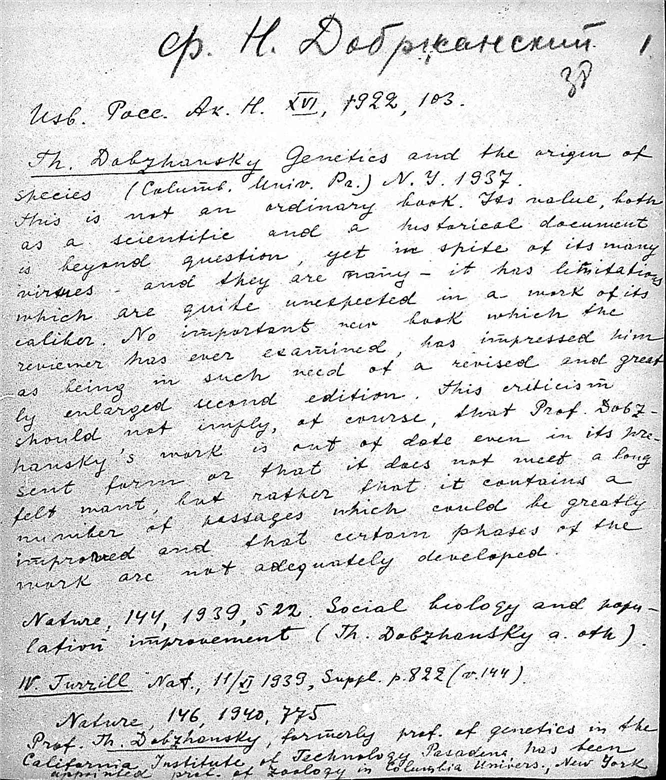 Ф. Н. Добржанский 1.
38
Изв. Росс. Ак. Н. XVI, 1922, 103.
Th. Dobzhansky Genetics and the origin of
species (Columb. Univ. Pr.) N. Y. 1937.
This is not an ordinary book. Its value, both
as a scientific and a historical document
is beyond question, yet in spite of its many
virtues - and they are many - it has limitations
which are quite unexpected in a work of its
caliber. No important new book which the
reviewer has ever examined, has impressed him
as being in such need of a revised and great
ly enlarged second edition. This criticism
should not imply, of course, that Prof. Dobz-
hansky's work is out of date even in its pre-
sent form or that it does not meet a long
felt want, but rather that it contains a
number of passages which could be greatly
improved and that certain phases of the
work are not adequately developed.
Nature, 144, 1939, 522. Social biology and popu-
lation improvement (Th. Dobzhansky a. oth).
W. Turrill Nat., 11/XI 1939, Suppl. p. 822 (v. 144).
Nature, 146, 1940, 775
Prof. Th. Dobzhansky, formerly prof. of genetics in the
California Institute of Technology Pasadena has been
appointed prof. of zoology in Columbia Univers., New York